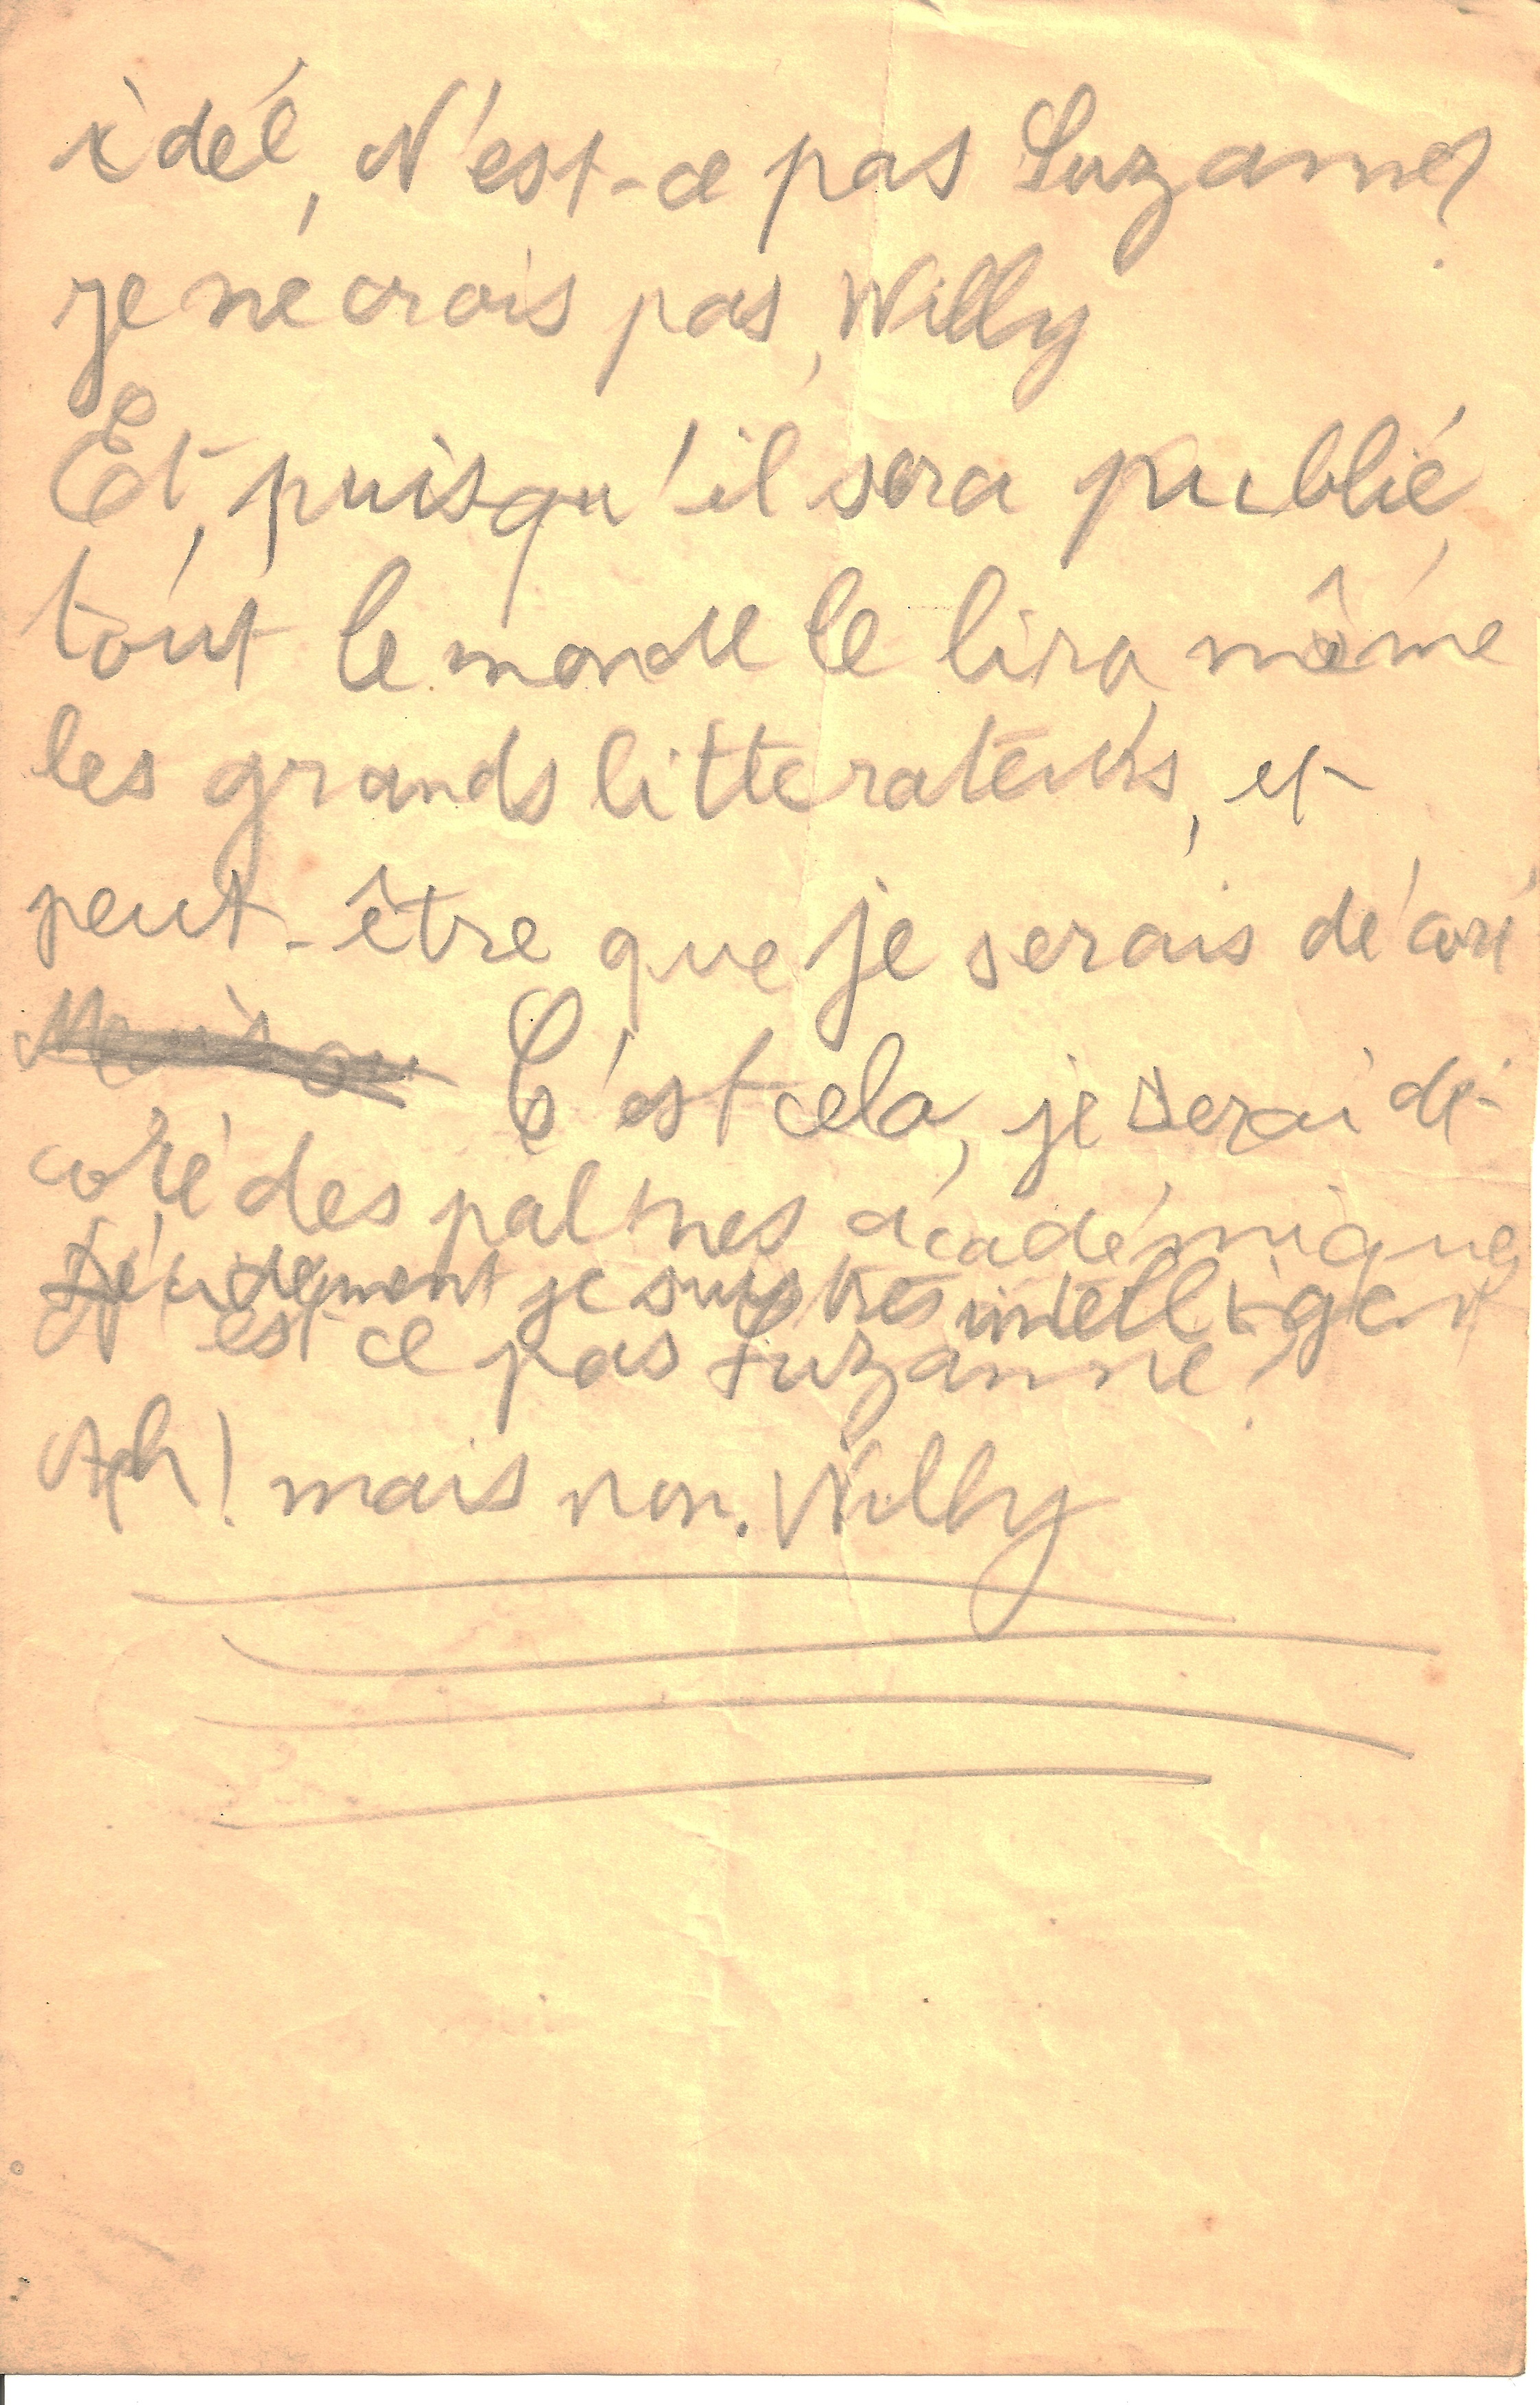 idéé, N'est-ce pas Suzanne?
je ne crois pas, Willy
Et, puisqu'il sera publié,
tout le monde le lira, même
les grands litterateurs, et
peut-être que je serais décoré
C'est cela, je serai dé-
coré des palmes académiques
Décidement je suis très intelligent
N'est ce pas Suzanne?
Ah! mais non. Willy